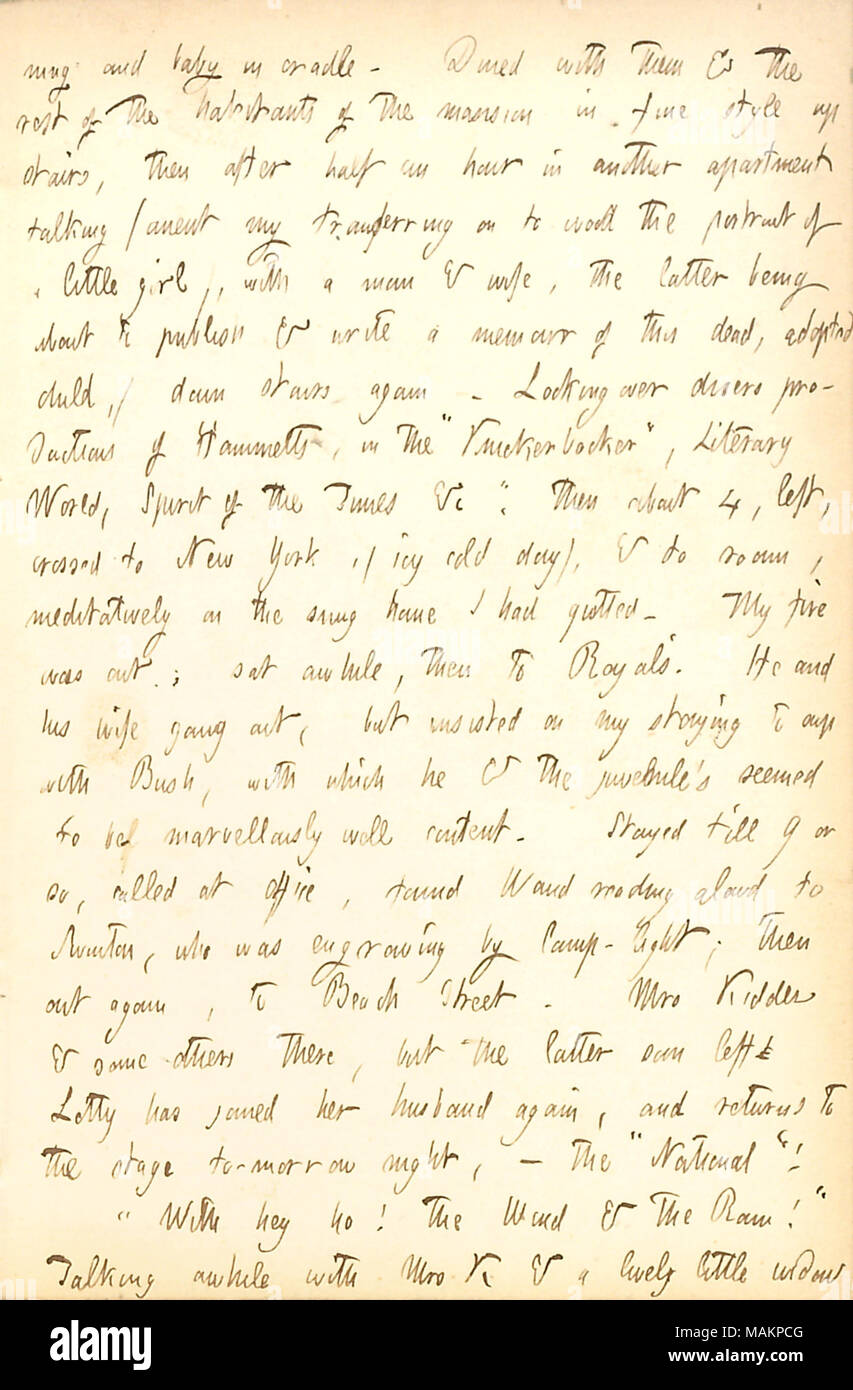 ning and baby in cradle - Dined with them & the
rest of the habitants of the mansion in fine style up
stairs, then after half an hour in another apartment
talking (anent my transferring on to wood the portrait of
a little girl), with a man & wife, the latter being
about to publish & write a memoir of this dead, adopted
child,) down stairs again - Looking over divers pro-
ductions of Hammetts, in the "Knickerbocker", Literary
World, Spirit of the Times &c; then about 4, left,
crossed to New York, (icy cold day), & to room,
meditatively on the snug home I had quitted - My fire
was out; sat awhile, then to Royals. He and
his wife going out, but insisted on my staying to sup
with Bush, with which he & the juvenile's seemed
to be marvellously well content - Stayed till 9 or
so, called at office, found Waud reading aloud to
Swinton, who was engraving by lamp-light; then
out again, to Beach Street - Mrs Kidder
& some others there, but the latter soon left
Letty has joined her husband again, and returns to
the stage to-morrow night, - the "National"!
"With hey ho! the Wind & the Rain!"
Talking awhile with Mrs K & a lively little widow
alamy
Image ID: MAKPCG
www.alamy.com